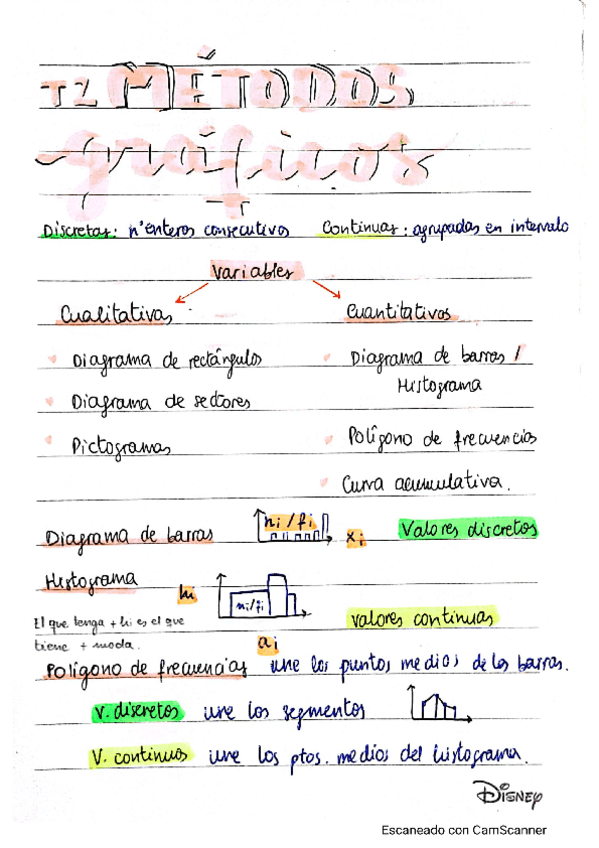 T2 MÉTODOS
gráficos
Discretas: nºenteros consecutivos   Continuas: agrupadas en intervalo
Variables
Cualitativas   Cuantitativos
Diagrama de rectángulos   Diagrama de barras /
Histograma
Diagrama de sectores
Pictogramas   Polígono de frecuencias
Curva acumulativa.
Diagrama de barras   ni/fi   xi   Valores discretos
Histograma   hi   ni/fi   valores continuas
El que tenga + hi es el que
tiene + moda.   ai
Polígono de frecuencias   une los puntos medios de las barras.
V. discretos   une los segmentos
V. continuos   une los ptos. medios del histograma.
Disney
Escaneado con CamScanner